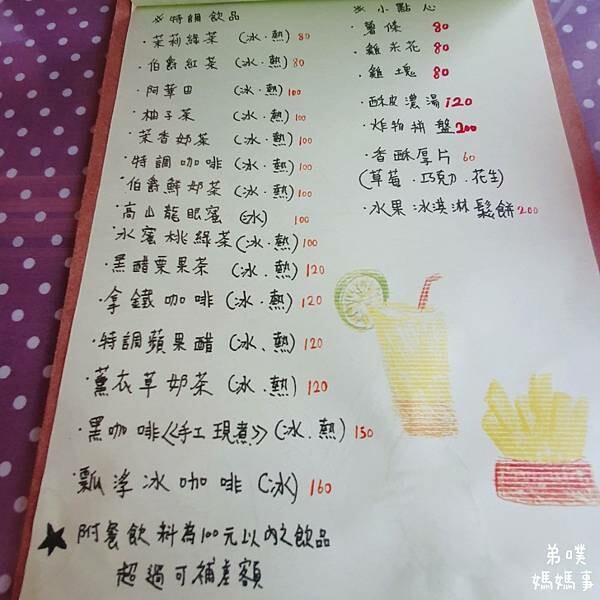 ※特調飲品
·茉莉綠茶 (冰·熱) 80
·伯爵紅茶 (冰·熱) 80
·阿華田 (冰·熱) 100
·柚子茶 (冰·熱) 100
·茉香奶茶 (冰·熱) 100
·特調咖啡 (冰·熱) 100
·伯爵鮮奶茶 (冰·熱) 100
·高山龍眼蜜 (冰) 100
·水蜜桃綠茶 (冰·熱) 100
·黑醋栗果茶 (冰·熱) 120
·拿鐵咖啡 (冰·熱) 120
·特調蘋果醋 (冰·熱) 120
·薰衣草奶茶 (冰·熱) 120
·黑咖啡《手工現煮》(冰·熱) 150
·飄浮冰咖啡 (冰) 160
★附餐飲料為100元以內之飲品
超過可補差額
※小點心
·薯條 80
·雞米花 80
·雞塊 80
·酥皮濃湯 120
·炸物拼盤 200
·香酥厚片 60
(草莓·巧克力·花生)
·水果冰淇淋鬆餅 200
弟噗
媽媽事